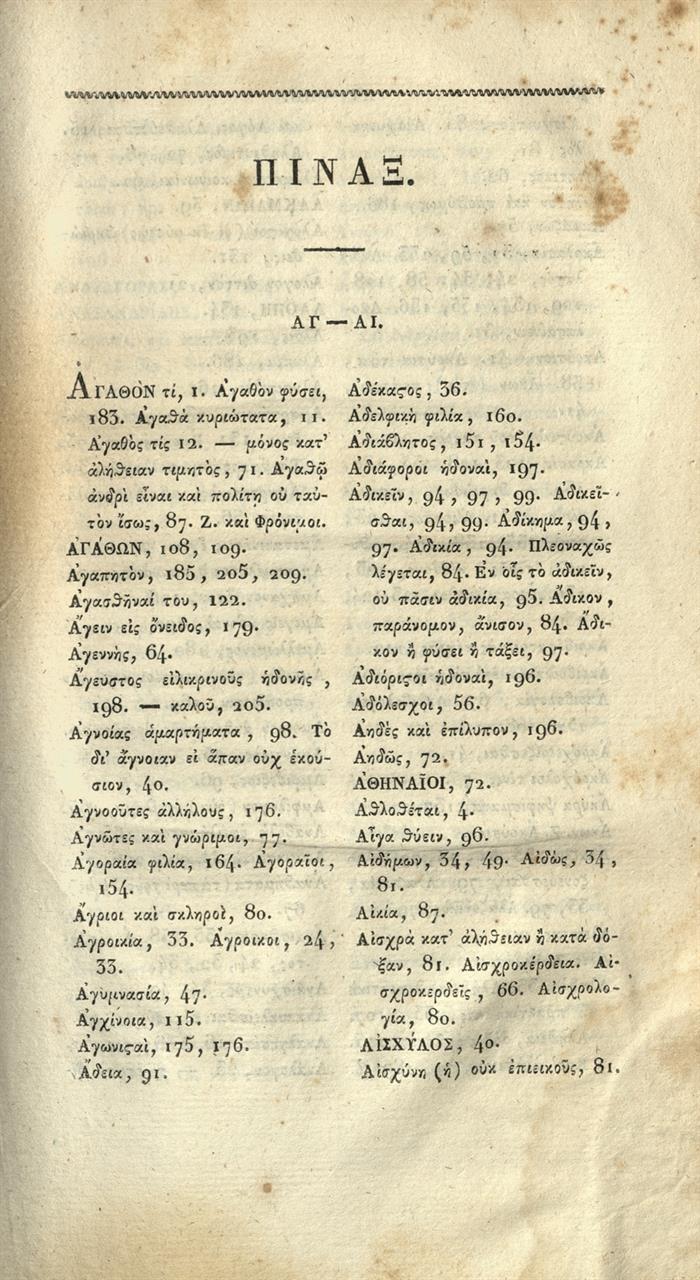 ΠΙΝΑΞ.
ΑΓ — ΑΙ.
ἈΓΑΘῸΝ τί, 1. Ἀγαθὸν φύσει,
183. Ἀγαθὰ κυριώτατα, 11.
Ἀγαθὸς τίς 12. — μόνος κατ'
ἀλήθειαν τιμητὸς, 71. Ἀγαθῷ
ἀνδρὶ εἶναι καὶ πολίτῃ οὐ ταὐ-
τὸν ἴσως, 87. Ζ. καὶ Φρόνιμοι.
ἈΓΆΘΩΝ, 108, 109.
Ἀγαπητὸν, 185, 205, 209.
Ἀγασθῆναί του, 122.
Ἄγειν εἰς ὄνειδος, 179.
Ἀγεννὴς, 64.
Ἄγευστος εἰλικρινοῦς ἡδονῆς,
198. — καλοῦ, 205.
Ἀγνοίας ἁμαρτήματα, 98. Τὸ
δι' ἄγνοιαν εἰ ἅπαν οὐχ ἑκού-
σιον, 40.
Ἀγνοοῦτες ἀλλήλους, 176.
Ἀγνῶτες καὶ γνώριμοι, 77.
Ἀγοραία φιλία, 164. Ἀγοραῖοι,
154.
Ἄγριοι καὶ σκληροὶ, 80.
Ἀγροικία, 33. Ἄγροικοι, 24,
33.
Ἀγυμνασία, 47.
Ἀγχίνοια, 115.
Ἀγωνιϛαὶ, 175, 176.
Ἄδεια, 91.
Ἀδέκαϛος, 36.
Ἀδελφικὴ φιλία, 160.
Ἀδιάβλητος, 151, 154.
Ἀδιάφοροι ἡδοναὶ, 197.
Ἀδικεῖν, 94, 97, 99. Ἀδικεῖ-
σθαι, 94, 99. Ἀδίκημα, 94,
97. Ἀδικία, 94. Πλεοναχῶς
λέγεται, 84. Ἐν οἷς τὸ ἀδικεῖν,
οὐ πᾶσιν ἀδικία, 95. Ἄδικον,
παράνομον, ἄνισον, 84. Ἄδι-
κον ἢ φύσει ἢ τάξει, 97.
Ἀδιόριϛοι ἡδοναὶ, 196.
Ἀδόλεσχοι, 56.
Ἀηδὲς καὶ ἐπίλυπον, 196.
Ἀηδῶς, 72.
ἈΘΗΝΑΙ͂ΟΙ, 72.
Ἀθλοθέται, 4.
Αἶγα θύειν, 96.
Αἰδήμων, 34, 49. Αἰδὼς, 34,
81.
Αἰκία, 87.
Αἰσχρὰ κατ' ἀλήθειαν ἢ κατὰ δό-
ξαν, 81. Αἰσχροκέρδεια. Αἰ-
σχροκερδεῖς, 66. Αἰσχρολο-
γία, 80.
ΑἸΣΧΎΛΟΣ, 40.
Αἰσχύνη (ἡ) οὐκ ἐπιεικοῦς, 81.